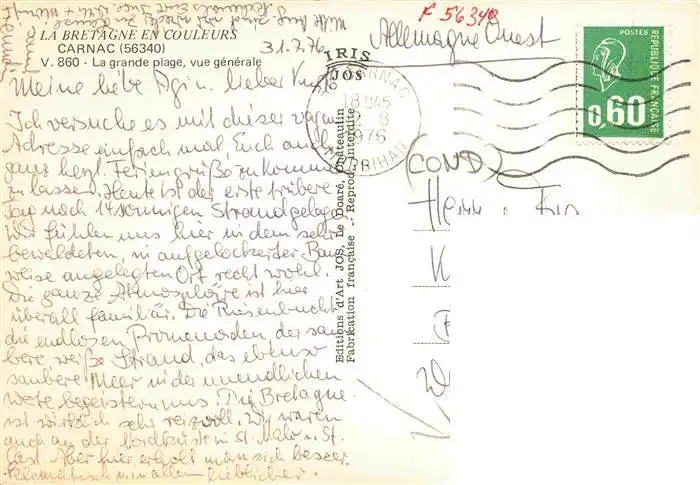 LA BRETAGNE EN COULEURS
CARNAC (56340)
V. 860 - La grande plage, vue générale
31.7.76
IRIS
JOS
F 56340
Allemagne Ouest
POSTES
REPUBLIQUE FRANÇAISE
0,60
CARNAC
18H45
2 8
1976
MORBIHAN
Editions d'Art JOS, Le Doaré, Châteaulin
Fabrication française - Reprod. interdite
Meine liebe lieber
Ich versuche es mit dieser vagen
Adresse einfach mal, Euch auch
ganz herzl. Feriengrüße zukommen
zu lassen. Heute ist der erste trübere
Tag nach 14 sonnigen Strandgelage.
Wir fühlen uns hier in dem sehr
bewaldeten, in aufgelockerter Bau
weise angelegten Ort recht wohl.
Die ganze Atmosphäre ist hier
überall familiär. Die Riesenbucht
die endlosen Promenaden, der sau
bere weiße Strand, das ebenso
saubere Meer in der unendlichen
Weite begeistern uns. Die Bretagne
ist wirklich sehr reizvoll. Wir waren
auch an der Nordküste in St. Malo u. St.
Cast. Aber hier erholt man sich besser.
Klimatisch u. in allem lieblicher.
(COND)
Herrn